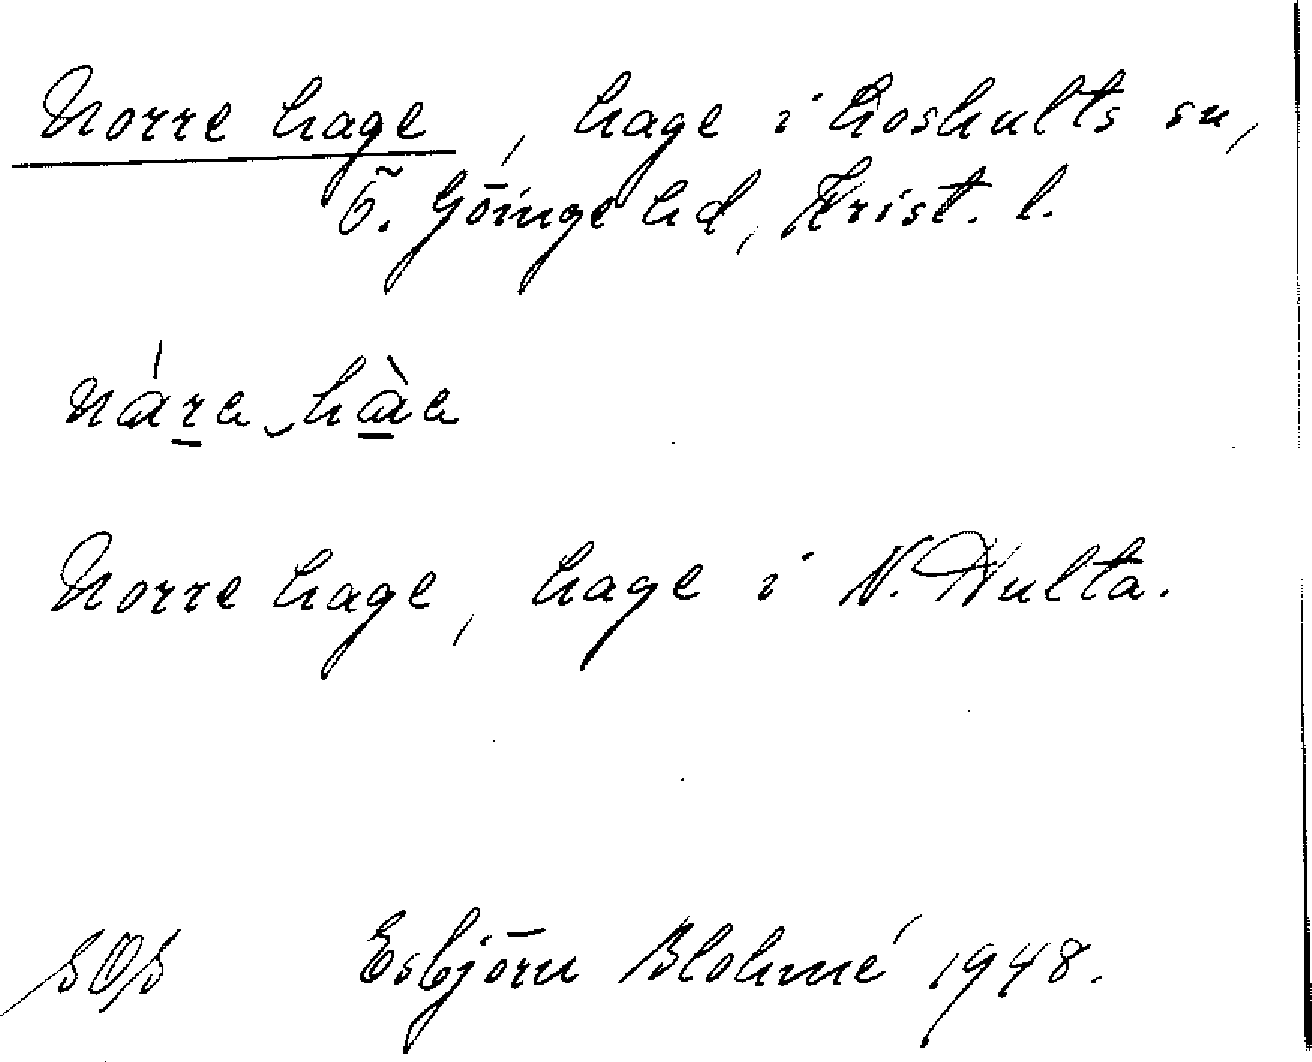 Norre hage, hage i Loshults sn,
Ö. Göinge hd, Krist. l.
nára hàa
Norre hage, hage i N. Hulta.
Esbjörn Blohmé 1948.